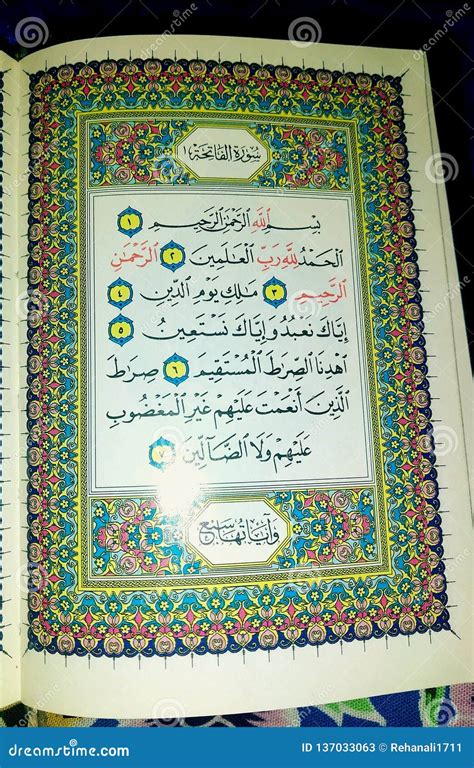 سورة الفاتحة ١
بِسْمِ اللَّهِ الرَّحْمَٰنِ الرَّحِيمِ ١
الْحَمْدُ لِلَّهِ رَبِّ الْعَالَمِينَ ٢ الرَّحْمَٰنِ
الرَّحِيمِ ٣ مَالِكِ يَوْمِ الدِّينِ ٤
إِيَّاكَ نَعْبُدُ وَإِيَّاكَ نَسْتَعِينُ ٥
اهْدِنَا الصِّرَاطَ الْمُسْتَقِيمَ ٦ صِرَاطَ
الَّذِينَ أَنْعَمْتَ عَلَيْهِمْ غَيْرِ الْمَغْضُوبِ
عَلَيْهِمْ وَلَا الضَّالِّينَ ٧
وآياتها سبع
dreamstime.com
ID 137033063 © Rehanali1711